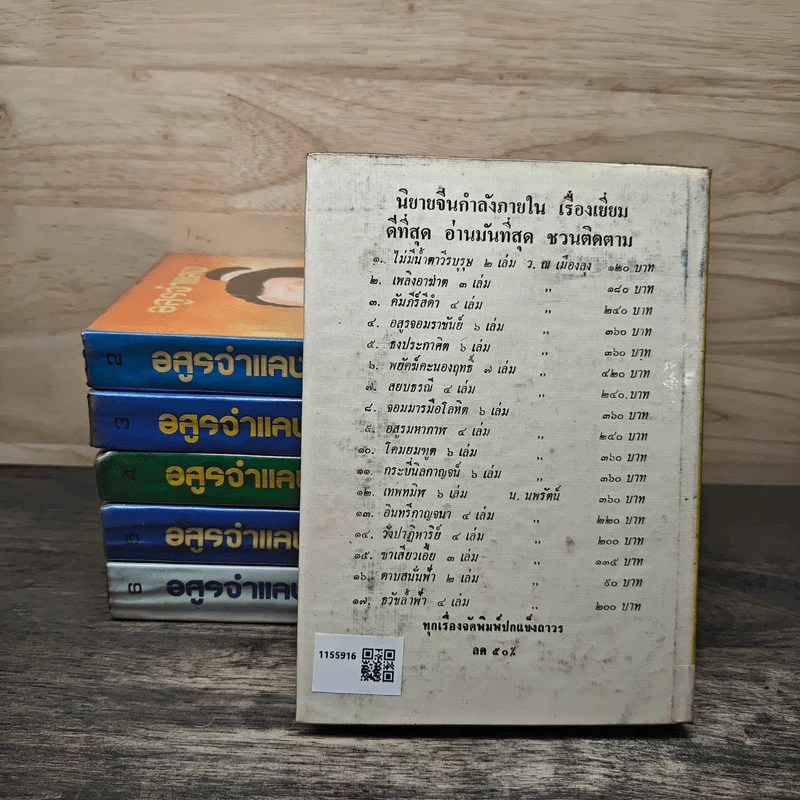 นิยายจีนกำลังภายใน เรื่องเยี่ยม
ดีที่สุด อ่านมันที่สุด ชวนติดตาม
๑. ไม่มีน้ำตาวีรบุรุษ ๒ เล่ม ว. ณ เมืองลุง ๑๒๐ บาท
๒. เพลิงอาฆาต ๓ เล่ม ,, ๑๘๐ บาท
๓. คัมภีร์สีดำ ๔ เล่ม ,, ๒๔๐ บาท
๔. อสูรจอมราชันย์ ๖ เล่ม ,, ๓๖๐ บาท
๕. ธงประกาศิต ๖ เล่ม ,, ๓๖๐ บาท
๖. พยัคฆ์คะนองฤทธิ์ ๗ เล่ม ,, ๔๒๐ บาท
๗. สยบธรณี ๔ เล่ม ,, ๒๔๐ บาท
๘. จอมมารมือโลหิต ๖ เล่ม ,, ๓๖๐ บาท
๙. อสูรมหากาฬ ๔ เล่ม ,, ๒๔๐ บาท
๑๐. โคมยมฑูต ๖ เล่ม ,, ๓๖๐ บาท
๑๑. กระบี่นิลกาญจน์ ๖ เล่ม ,, ๓๖๐ บาท
๑๒. เทพทมิฬ ๖ เล่ม น. นพรัตน์ ๓๖๐ บาท
๑๓. อินทรีกาญจนา ๔ เล่ม ,, ๒๒๐ บาท
๑๔. วังปาฏิหาริย์ ๔ เล่ม ,, ๒๐๐ บาท
๑๕. ชาเสียวเอี้ย ๓ เล่ม ,, ๑๓๕ บาท
๑๖. ดาบสนั่นฟ้า ๒ เล่ม ,, ๙๐ บาท
๑๗. ธวัชล้ำฟ้า ๔ เล่ม ,, ๒๐๐ บาท
ทุกเรื่องจัดพิมพ์ปกแข็งถาวร
ลด ๕๐%
1155916
อสูรจำแลง
2 อสูรจำแลง
3 อสูรจำแลง
4 อสูรจำแลง
5 อสูรจำแลง
6 อสูรจำแลง